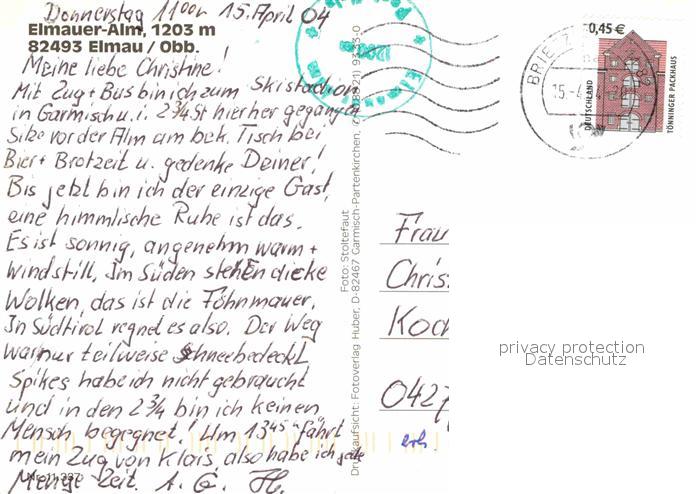 Donnerstag 11 00h 15. April 04
Elmauer-Alm, 1203 m
82493 Elmau / Obb.
Meine liebe Christine!
Mit Zug + Bus bin ich zum Skistadion
in Garmisch u. i. 2 3/4 St hierher gegangen
Sitze vor der Alm am bek. Tisch bei
Bier + Brotzeit u. gedenke Deiner!
Bis jetzt bin ich der einzige Gast,
eine himmlische Ruhe ist das.
Es ist sonnig, angenehm warm +
windstill. Im Süden stehen dicke
Wolken, das ist die Föhnmauer,
In Südtirol regnet es also. Der Weg
war nur teilweise schneebedeckt
Spikes habe ich nicht gebraucht
und in den 2 3/4 bin ich keinen
Mensch begegnet! Um 13 45 h fährt
mein Zug von Klais, also habe ich jede
Menge Zeit. A. G. H.
Foto: Stoltefaut
Fotoverlag Huber, D-82467 Garmisch-Partenkirchen,
BRIEFZ
15.-4.
0,45 €
DEUTSCHLAND
TÖNNINGER PACKHAUS
Frau
Chris
Koch
privacy protection
Datenschutz
0427
erh.